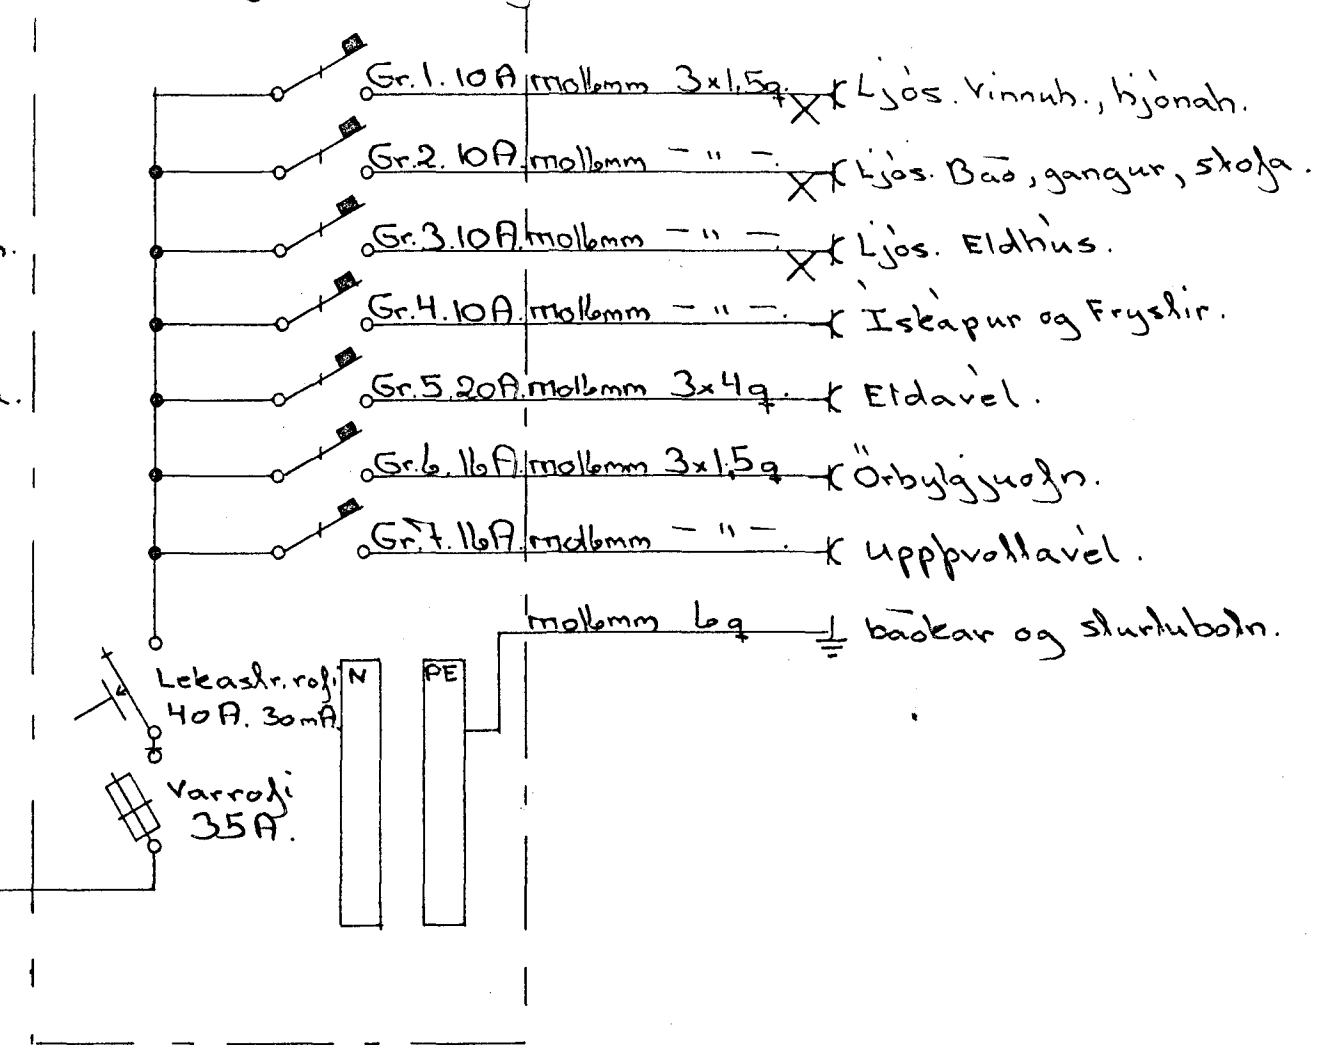 Gr.1. 10A mol16mm 3x1,5q. Ljós. Vinnuh., hjónah.
Gr.2. 10A. mol16mm - " -. Ljós. Bað, gangur, stofa.
Gr.3. 10A. mol16mm - " -. Ljós. Eldhús.
Gr.4. 10A. mol16mm - " -. Ískápur og Frystir.
Gr.5. 20A. mol16mm 3x4q. Eldavél.
Gr.6. 16A mol16mm 3x1,5q Örbylgjuofn.
Gr.7. 16A. mol16mm - " -. Uppþvottavél.
mol16mm 6q baðkar og sturtubotn.
Lekastr.rofi N PE
40A. 30mA.
Varrofi
35A.